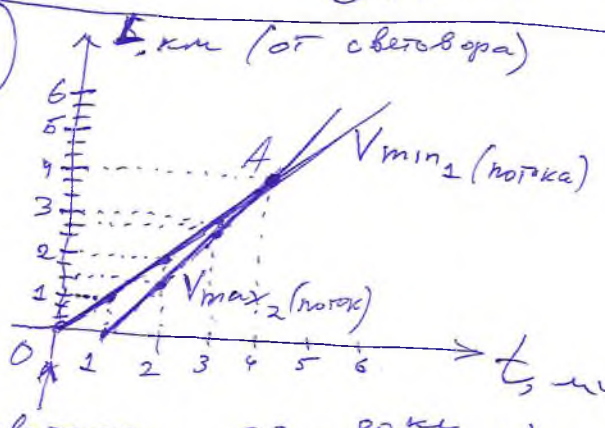 S, км (от светофора)
6
5
4
A
Vmin₁ (потока)
3
2
1
Vmax₂ (поток)
0 1 2 3 4 5 6
t, ми